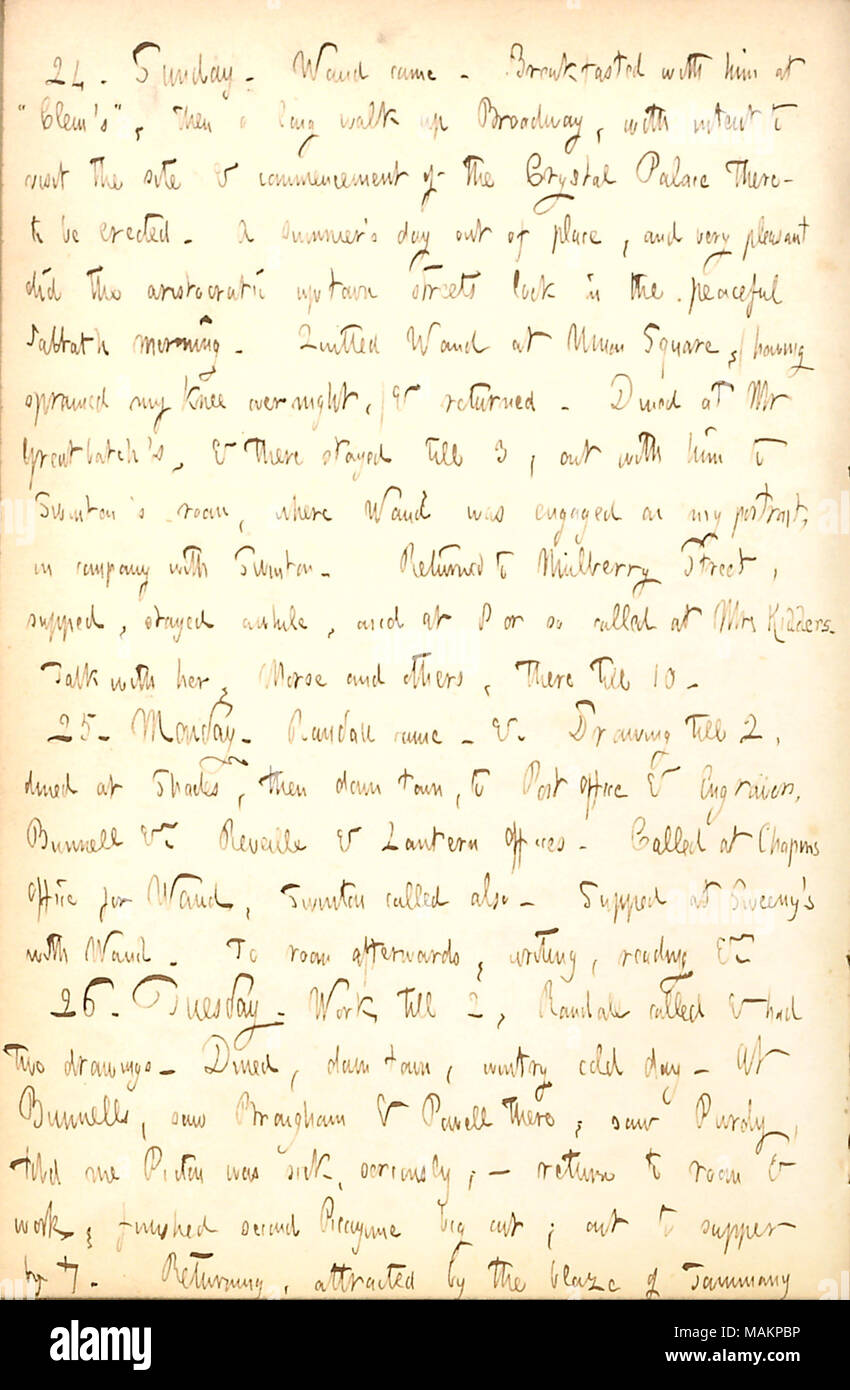 24. Sunday. Waud came. Breakfasted with him at
"Clem's", then a long walk up Broadway, with intent to
visit the site & commencement of the Crystal Palace there-
to be erected. A summer's day out of place, and very pleasant
did the aristocratic up town streets look in the peaceful
Sabbath morning. Quitted Waud at Union Square, (having
sprained my knee overnight,) & returned. Dined at Mr
Greatbatch's, & there stayed till 3, out with him to
Swinton's room, where Waud was engaged on my portrait,
in company with Swinton. Returned to Mulberry Street,
supped, stayed awhile, and at 8 or so called at Mrs Kidders.
Talk with her, Morse and others, there till 10.
25. Monday. Randall came - &c. Drawing till 2,
dined at Shades, then down town, to Post Office & Engravers,
Bunnell &c. Reveille & Lantern offices. Called at Chapins
office for Waud, Swinton called also. Supped at Sweeny's
with Waud. To room afterwards, writing, reading &c
26. Tuesday. Work till 2, Randall called & had
two drawings. Dined, down town, wintry cold day. At
Bunnells, saw Brougham & Powell there; saw Purdy,
told me Picton was sick, seriously; - return to room &
work; finished second Picayune big cut; out to supper
by 7. Returning, attracted by the blaze of Tammany
alamy
Image ID: MAKPBP
www.alamy.com